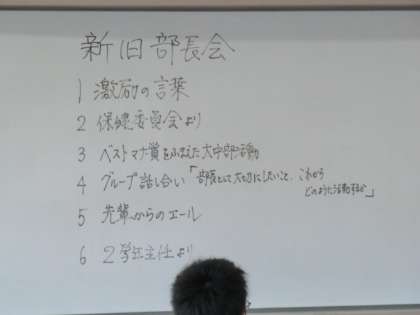 新旧部長会
1 激励の言葉
2 保健委員会より
3 ベストマナー賞をふまえた大中部活動
4 グループ話し合い「部長として大切にしたいこと、これから
どのように活動するか」
5 先輩からのエール
6 2学年主任より